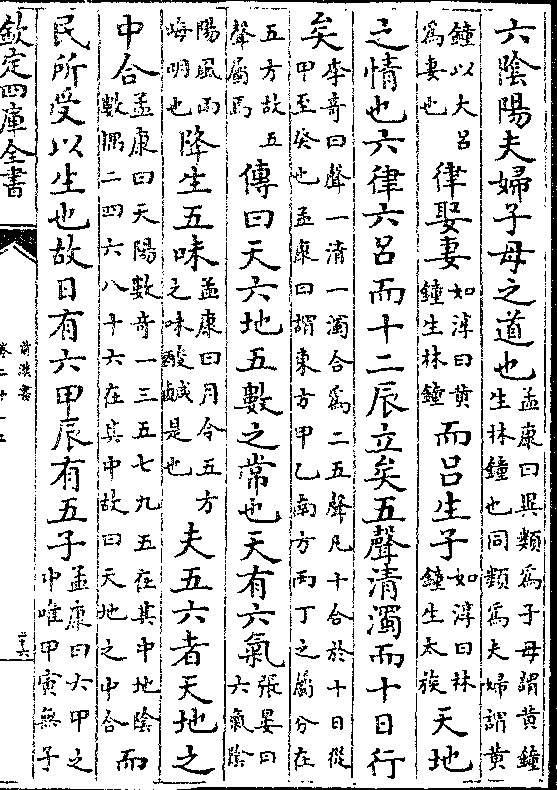 六陰陽夫婦子母之道也孟康曰異類為子母謂黃鐘生林鐘也同類為夫婦謂黃
鐘以大呂為妻也律娶妻如淳曰黃鐘生林鐘而呂生子如淳曰林鐘生太族天地
之情也六律六呂而十二辰立矣五聲清濁而十日行
矣李竒曰聲一清一濁合為二五聲凡十合於十日從甲至癸也孟康曰謂東方甲乙南方丙丁之屬分在
五方故五聲屬焉傳曰天六地五數之常也天有六氣張晏曰六氣陰
陽風雨晦明也降生五味孟康曰月令五方之味酸鹹是也夫五六者天地之
中合孟康曰天陽數竒一三五七九五在其中地陰數偶二四六八十六在其中故曰天地之中合而
民所受以生也故日有六甲辰有五子孟康曰六甲之中唯甲寅無子
欽定四庫全書
前漢書
卷二十一上